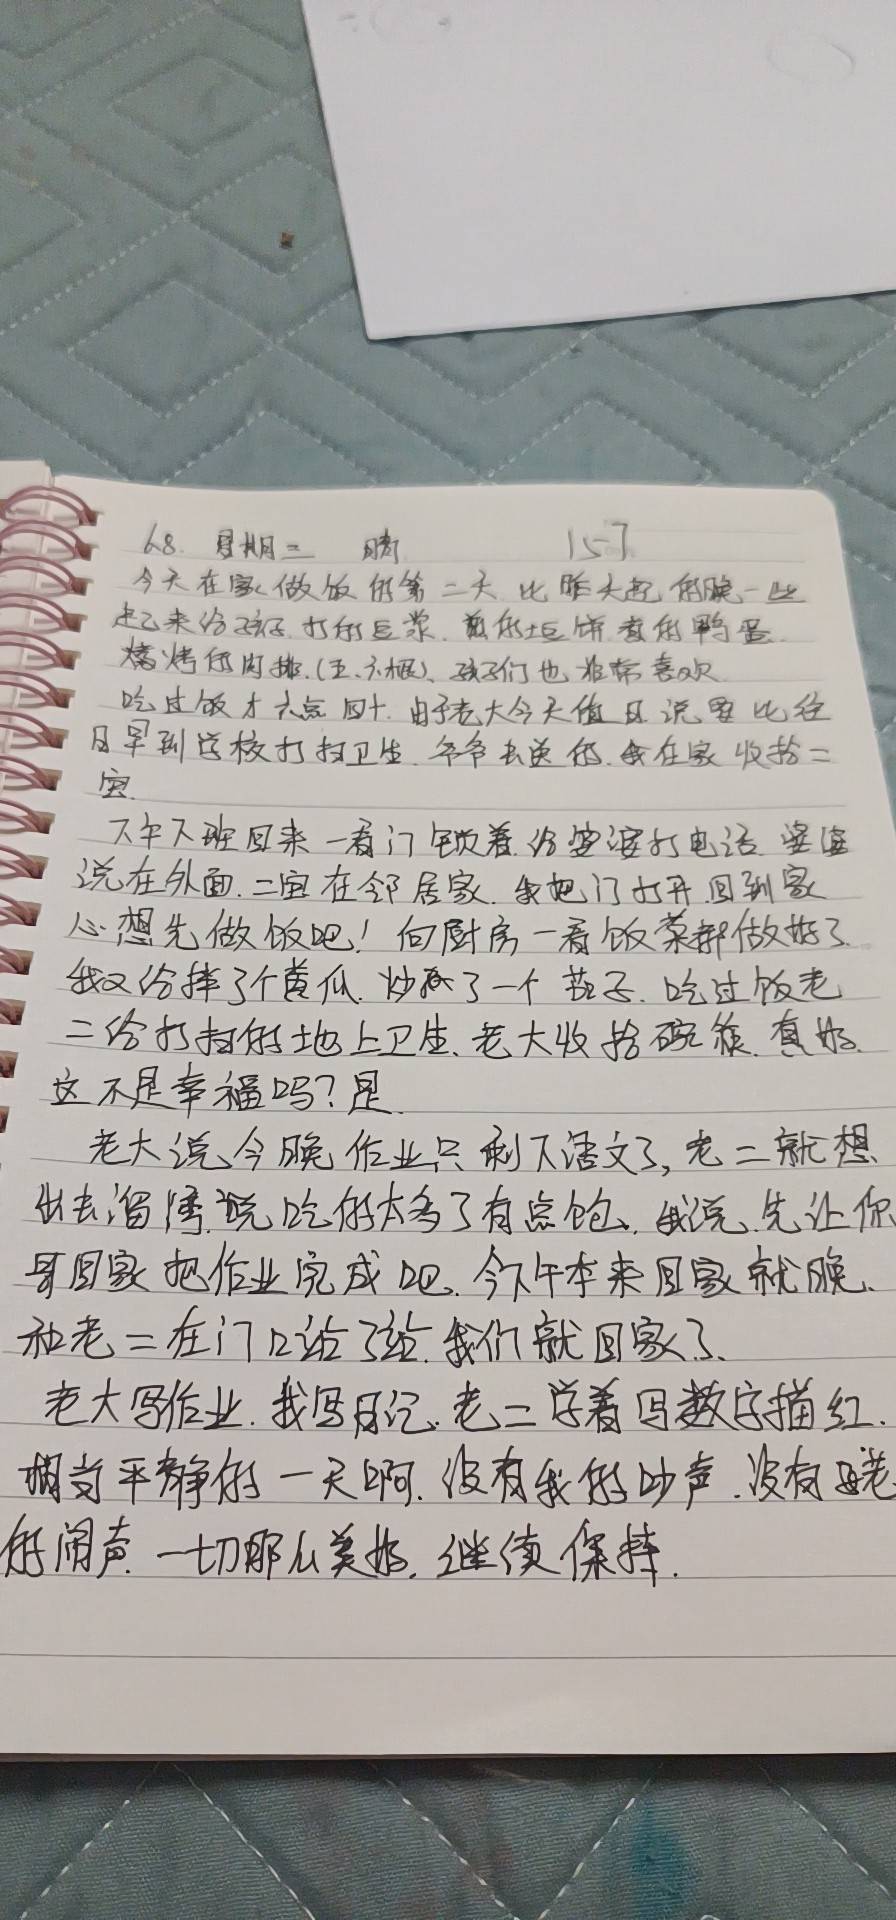 6.8. 星期二 晴 157
今天在家做饭的第二天 比昨天起的晚一些
起来给孩子打的豆浆. 煎的土豆饼 煮的鸭蛋.
烧烤的肉排.(五.六根)、孩子们也非常喜欢
吃过饭才六点四十. 由于老大今天值日说要比往
日早到学校打扫卫生. 爷爷去送的. 我在家收拾二
宝.
下午下班回来一看门锁着. 给婆婆打电话. 婆婆
说在外面. 二宝在邻居家. 我把门打开回到家
心想先做饭吧! 向厨房一看饭菜都做好了.
我又给拌了个黄瓜. 炒了一个茄子. 吃过饭老
二给打扫的地上卫生. 老大收拾碗筷. 真好.
这不是幸福吗? 是.
老大说今晚作业只剩下语文了, 老二就想
出去溜湾. 说吃的太多了有点饱. 我说. 先让你
哥回家把作业完成吧. 今下午本来回家就晚.
和老二在门口站了站. 我们就回家了.
老大写作业. 我写日记. 老二学着写数字描红.
相当平静的一天啊. 没有我的吵声. 没有老
的闹声. 一切那么美好. 继续保持.